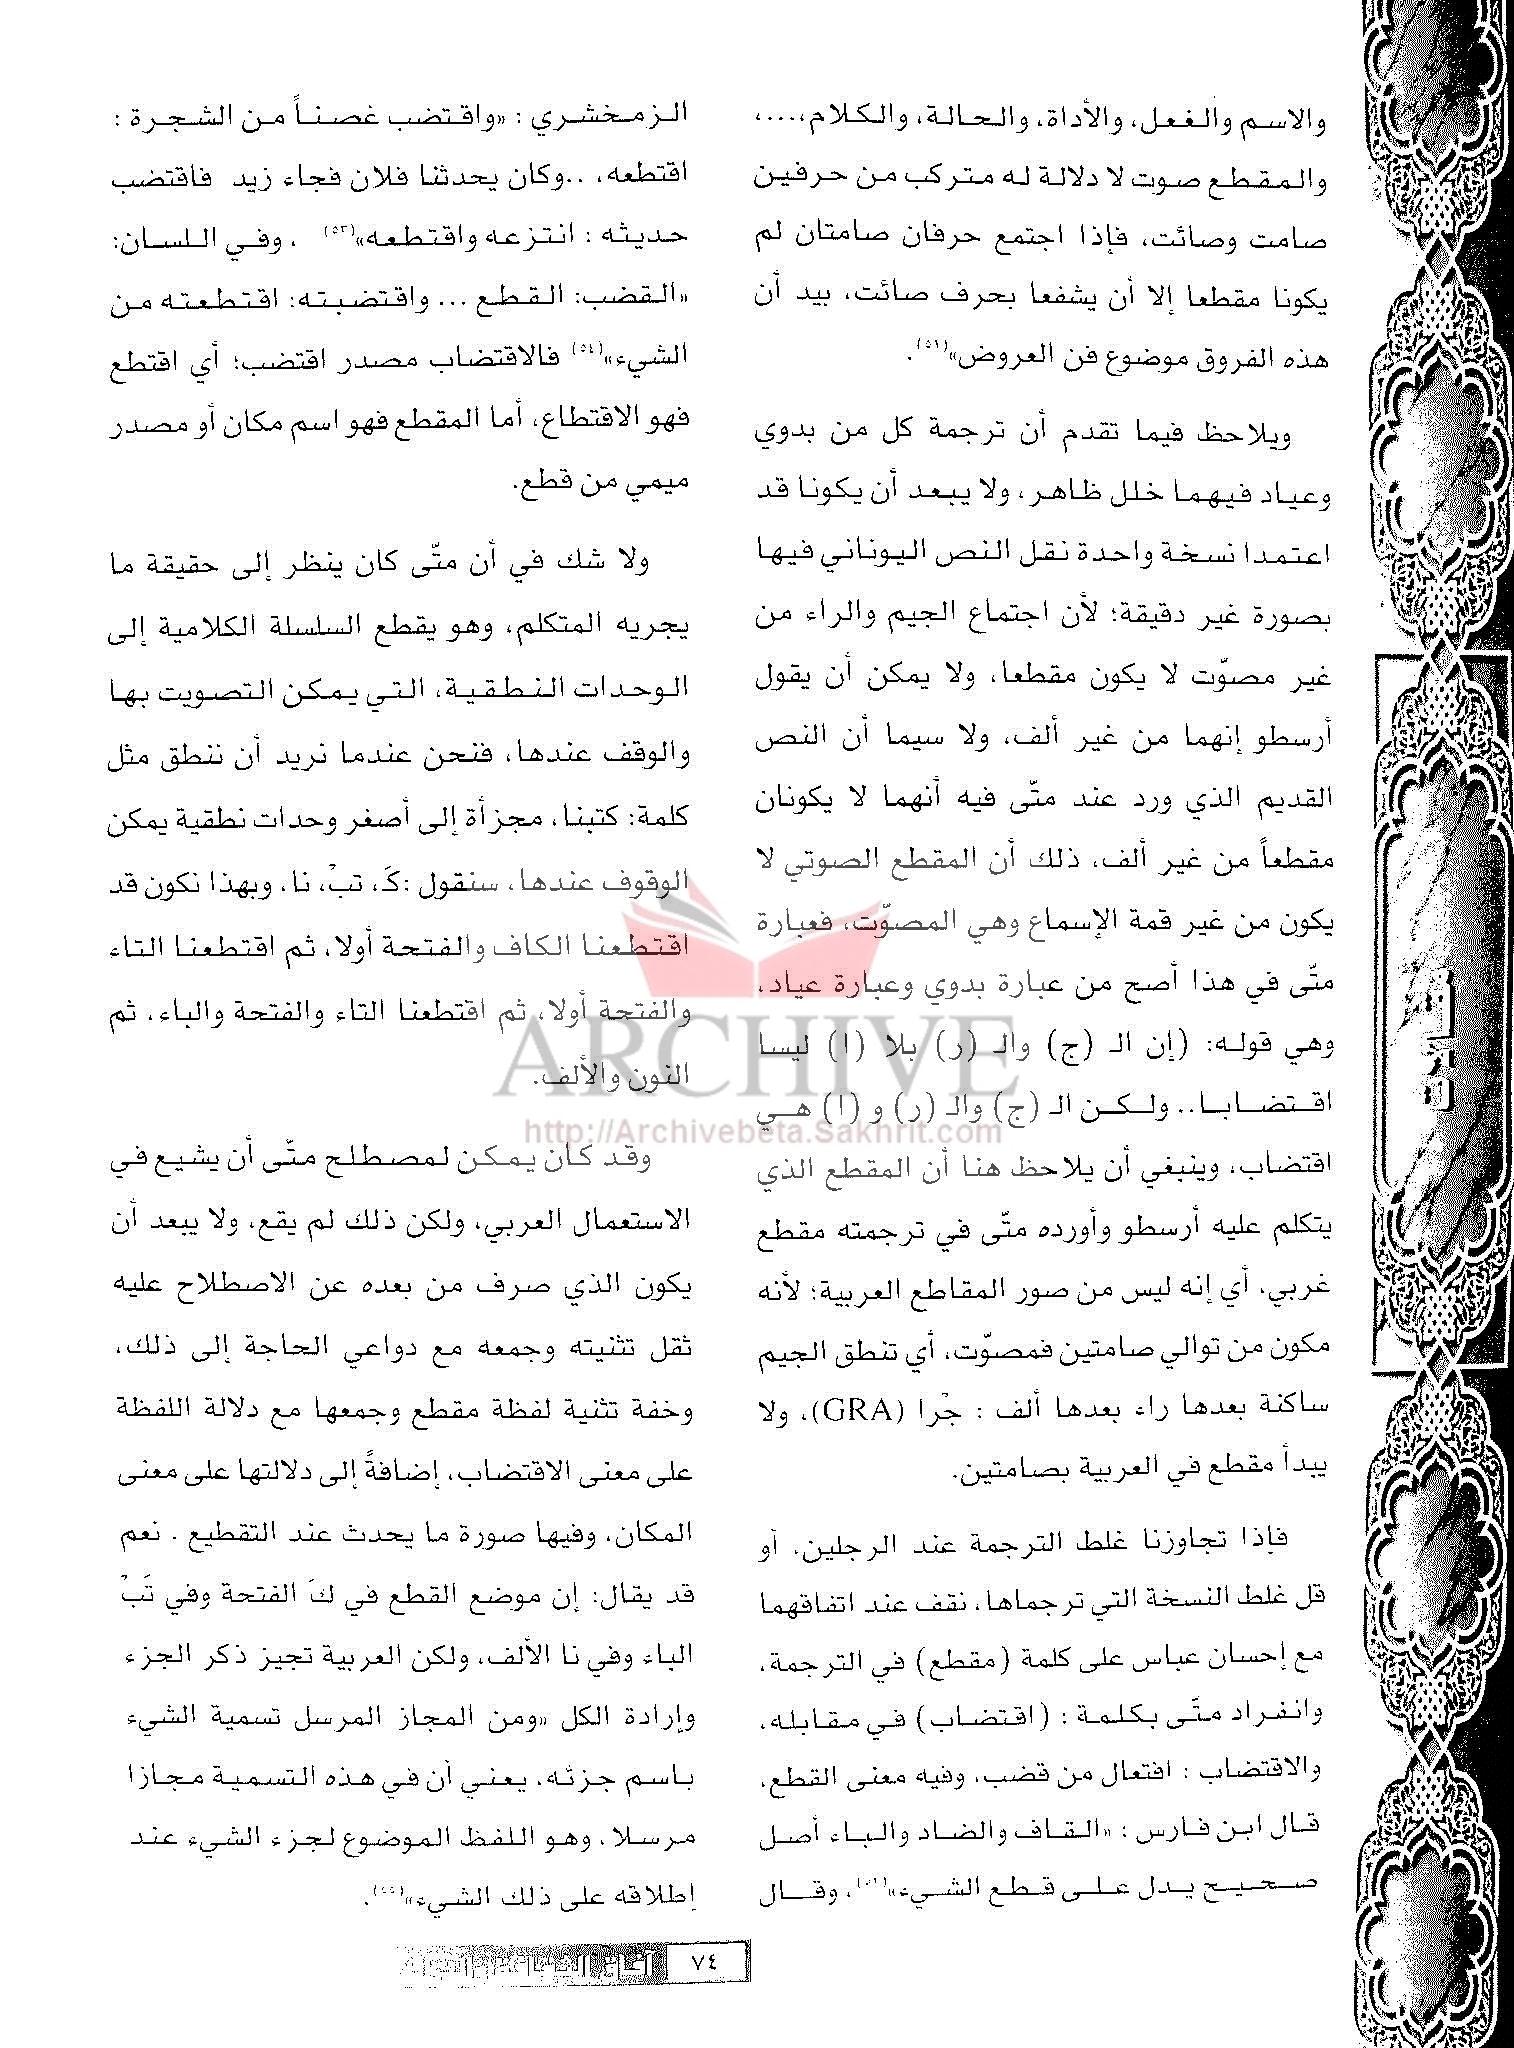 والاسم والفعل، والأداة، والحالة، والكلام،....،
والمقطع صوت لا دلالة له متركب من حرفين
صامت وصائت، فإذا اجتمع حرفان صامتان لم
يكونا مقطعا إلا أن يشفعا بحرف صائت، بيد أن
هذه الفروق موضوع فن العروض»(٥١).
ويلاحظ فيما تقدم أن ترجمة كل من بدوي
وعياد فيهما خلل ظاهر، ولا يبعد أن يكونا قد
اعتمدا نسخة واحدة نقل النص اليوناني فيها
بصورة غير دقيقة؛ لأن اجتماع الجيم والراء من
غير مصوّت لا يكون مقطعا، ولا يمكن أن يقول
أرسطو إنهما من غير ألف، ولا سيما أن النص
القديم الذي ورد عند متّى فيه أنهما لا يكونان
مقطعاً من غير ألف، ذلك أن المقطع الصوتي لا
يكون من غير قمة الإسماع وهي المصوّت، فعبارة
متّى في هذا أصح من عبارة بدوي وعبارة عياد،
وهي قوله: (إن الـ (ج) والـ (ر) بلا (ا) ليسا
اقتضابا.. ولكن الـ (ج) والـ (ر) و (ا) هي
اقتضاب، وينبغي أن يلاحظ هنا أن المقطع الذي
يتكلم عليه أرسطو وأورده متّى في ترجمته مقطع
غربي، أي إنه ليس من صور المقاطع العربية؛ لأنه
مكون من توالي صامتين فمصوّت، أي تنطق الجيم
ساكنة بعدها راء بعدها ألف : جْرا (GRA)، ولا
يبدأ مقطع في العربية بصامتين.
فإذا تجاوزنا غلط الترجمة عند الرجلين، أو
قل غلط النسخة التي ترجماها، نقف عند اتفاقهما
مع إحسان عباس على كلمة (مقطع) في الترجمة،
وانفراد متّى بكلمة : (اقتضاب) في مقابله،
والاقتضاب : افتعال من قضب، وفيه معنى القطع،
قال ابن فارس : «القاف والضاد والباء أصل
صحيح يدل على قطع الشيء»(٥٢)، وقال
الزمخشري : «واقتضب غصناً من الشجرة :
اقتطعه، ..وكان يحدثنا فلان فجاء زيد فاقتضب
حديثه : انتزعه واقتطعه»(٥٣) ، وفي اللسان:
«القضب: القطع ... واقتضبته: اقتطعته من
الشيء»(٥٤) فالاقتضاب مصدر اقتضب؛ أي اقتطع
فهو الاقتطاع، أما المقطع فهو اسم مكان أو مصدر
ميمي من قطع.
ولا شك في أن متّى كان ينظر إلى حقيقة ما
يجريه المتكلم، وهو يقطع السلسلة الكلامية إلى
الوحدات النطقية، التي يمكن التصويت بها
والوقف عندها، فنحن عندما نريد أن ننطق مثل
كلمة: كتبنا، مجزأة إلى أصغر وحدات نطقية يمكن
الوقوف عندها، سنقول :كَ، تبْ، نا، وبهذا نكون قد
اقتطعنا الكاف والفتحة أولا، ثم اقتطعنا التاء
والفتحة أولا، ثم اقتطعنا التاء والفتحة والباء، ثم
النون والألف.
وقد كان يمكن لمصطلح متّى أن يشيع في
الاستعمال العربي، ولكن ذلك لم يقع، ولا يبعد أن
يكون الذي صرف من بعده عن الاصطلاح عليه
ثقل تثنيته وجمعه مع دواعي الحاجة إلى ذلك،
وخفة تثنية لفظة مقطع وجمعها مع دلالة اللفظة
على معنى الاقتضاب، إضافةً إلى دلالتها على معنى
المكان، وفيها صورة ما يحدث عند التقطيع . نعم
قد يقال: إن موضع القطع في كَ الفتحة وفي تَبْ
الباء وفي نا الألف، ولكن العربية تجيز ذكر الجزء
وإرادة الكل «ومن المجاز المرسل تسمية الشيء
باسم جزئه، يعني أن في هذه التسمية مجازا
مرسلا، وهو اللفظ الموضوع لجزء الشيء عند
إطلاقه على ذلك الشيء»(٥٥).
ARCHIVE
http://Archivebeta.Sakhrit.com
مقالات
٧٤
آفاق الثقافة والتراث